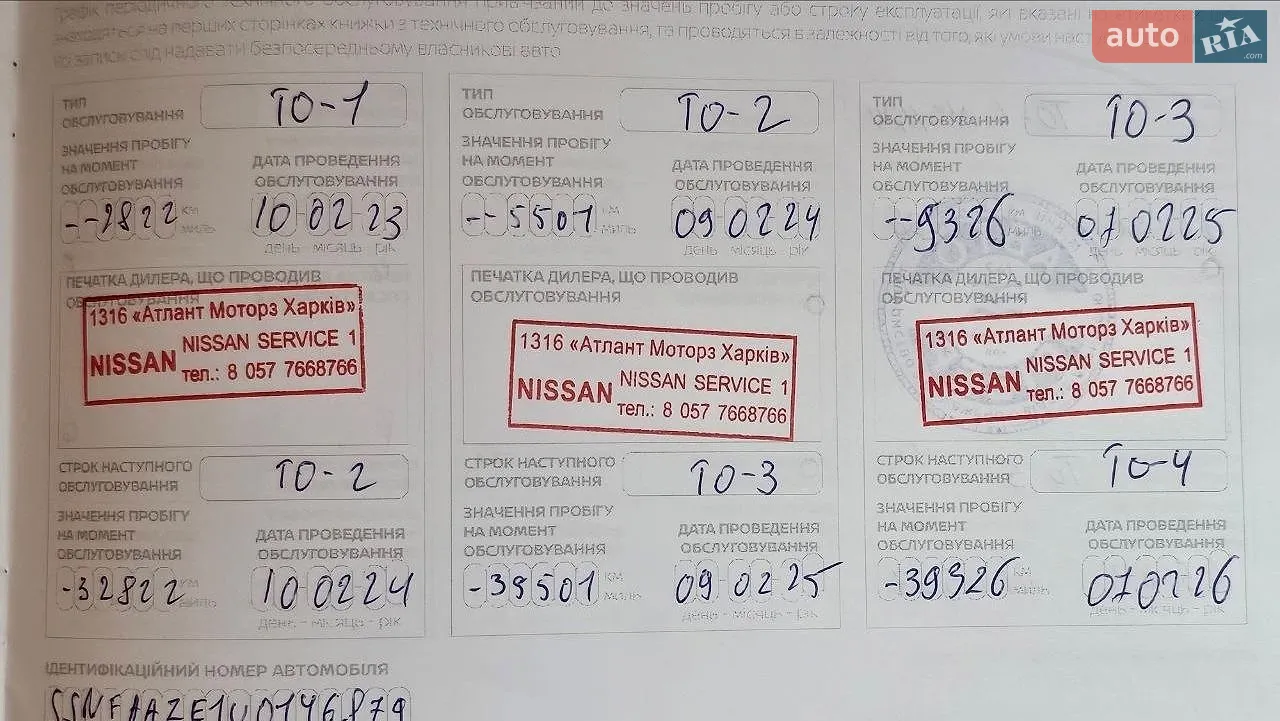 Графік періодичного технічного обслуговування прив'язаний до значень пробігу або строку експлуатації, які вказані
знаходяться на перших сторінках книжки з технічного обслуговування, та проводяться в залежності від того, які умови
запис слід надавати безпосередньому власникові авто
auto RIA .com
ТИП ОБСЛУГОВУВАННЯ ТО-1
ЗНАЧЕННЯ ПРОБІГУ НА МОМЕНТ ОБСЛУГОВУВАННЯ
--2822 КМ МИЛЬ
ДАТА ПРОВЕДЕННЯ ОБСЛУГОВУВАННЯ
10 02 23
день місяць рік
ПЕЧАТКА ДИЛЕРА, ЩО ПРОВОДИВ
ОБСЛУГОВУВАННЯ
1316 «Атлант Моторз Харків»
NISSAN NISSAN SERVICE 1
тел.: 8 057 7668766
СТРОК НАСТУПНОГО ОБСЛУГОВУВАННЯ ТО-2
ЗНАЧЕННЯ ПРОБІГУ НА МОМЕНТ ОБСЛУГОВУВАННЯ
-32822 КМ МИЛЬ
ДАТА ПРОВЕДЕННЯ ОБСЛУГОВУВАННЯ
10 02 24
день - місяць - рік
ТИП ОБСЛУГОВУВАННЯ ТО-2
ЗНАЧЕННЯ ПРОБІГУ НА МОМЕНТ ОБСЛУГОВУВАННЯ
--5501 КМ МИЛЬ
ДАТА ПРОВЕДЕННЯ ОБСЛУГОВУВАННЯ
09 02 24
день місяць рік
ПЕЧАТКА ДИЛЕРА, ЩО ПРОВОДИВ
ОБСЛУГОВУВАННЯ
1316 «Атлант Моторз Харків»
NISSAN NISSAN SERVICE 1
тел.: 8 057 7668766
СТРОК НАСТУПНОГО ОБСЛУГОВУВАННЯ ТО-3
ЗНАЧЕННЯ ПРОБІГУ НА МОМЕНТ ОБСЛУГОВУВАННЯ
-39501 КМ МИЛЬ
ДАТА ПРОВЕДЕННЯ ОБСЛУГОВУВАННЯ
09 02 25
день - місяць - рік
ТИП ОБСЛУГОВУВАННЯ ТО-3
ЗНАЧЕННЯ ПРОБІГУ НА МОМЕНТ ОБСЛУГОВУВАННЯ
--9326 КМ МИЛЬ
ДАТА ПРОВЕДЕННЯ ОБСЛУГОВУВАННЯ
07 02 25
день місяць рік
ПЕЧАТКА ДИЛЕРА, ЩО ПРОВОДИВ
ОБСЛУГОВУВАННЯ
1316 «Атлант Моторз Харків»
NISSAN NISSAN SERVICE 1
тел.: 8 057 7668766
СТРОК НАСТУПНОГО ОБСЛУГОВУВАННЯ ТО-4
ЗНАЧЕННЯ ПРОБІГУ НА МОМЕНТ ОБСЛУГОВУВАННЯ
-39326 КМ МИЛЬ
ДАТА ПРОВЕДЕННЯ ОБСЛУГОВУВАННЯ
07 02 26
день - місяць - рік
ІДЕНТИФІКАЦІЙНИЙ НОМЕР АВТОМОБІЛЯ